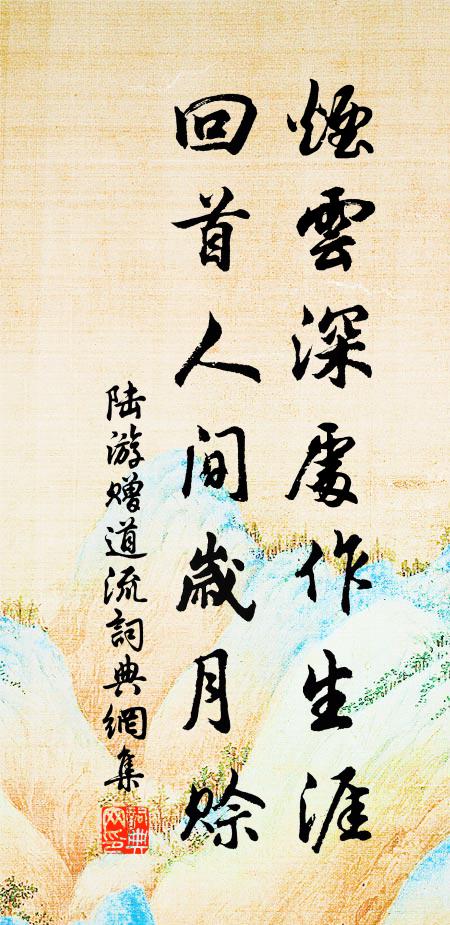 煙雲深處作生涯
回首人間歲月賒
陸游贈道流詞典網集
詞典
网印